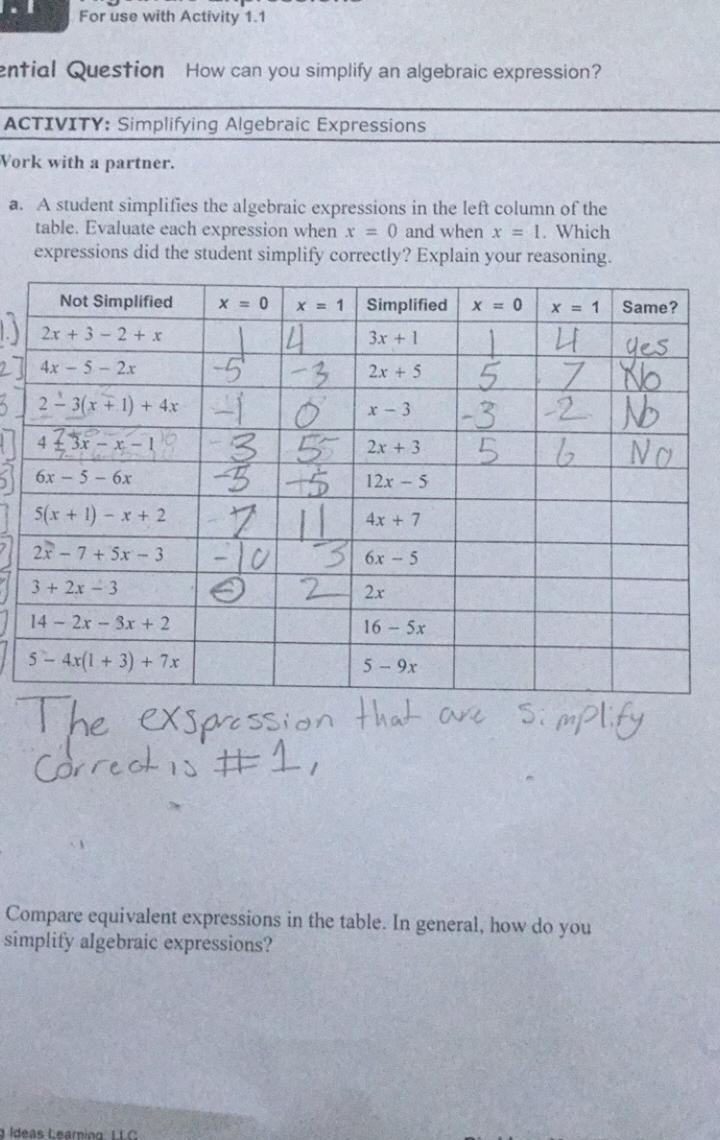 For use with Activity 1.1
ential Question How can you simplify an algebraic expression?
ACTIVITY: Simplifying Algebraic Expressions
Work with a partner.
a. A student simplifies the algebraic expressions in the left column of the
table. Evaluate each expression when x = 0 and when x = 1. Which
expressions did the student simplify correctly? Explain your reasoning.
Not Simplified x = 0 x = 1 Simplified x = 0 x = 1 Same?
1.) 2x + 3 - 2 + x 1 4 3x + 1 1 4 yes
2] 4x - 5 - 2x -5 -3 2x + 5 5 7 No
3] 2 - 3(x + 1) + 4x -1 0 x - 3 -3 -2 No
4 + 3x - x - 1 3 5 2x + 3 5 6 No
5] 6x - 5 - 6x -5 -5 12x - 5
5(x + 1) - x + 2 7 11 4x + 7
2x - 7 + 5x - 3 -10 3 6x - 5
3 + 2x - 3 0 2 2x
14 - 2x - 3x + 2 16 - 5x
5 - 4x(1 + 3) + 7x 5 - 9x
The exspression that are simplify
correct is #1,
Compare equivalent expressions in the table. In general, how do you
simplify algebraic expressions?
g Ideas Learning, LLC